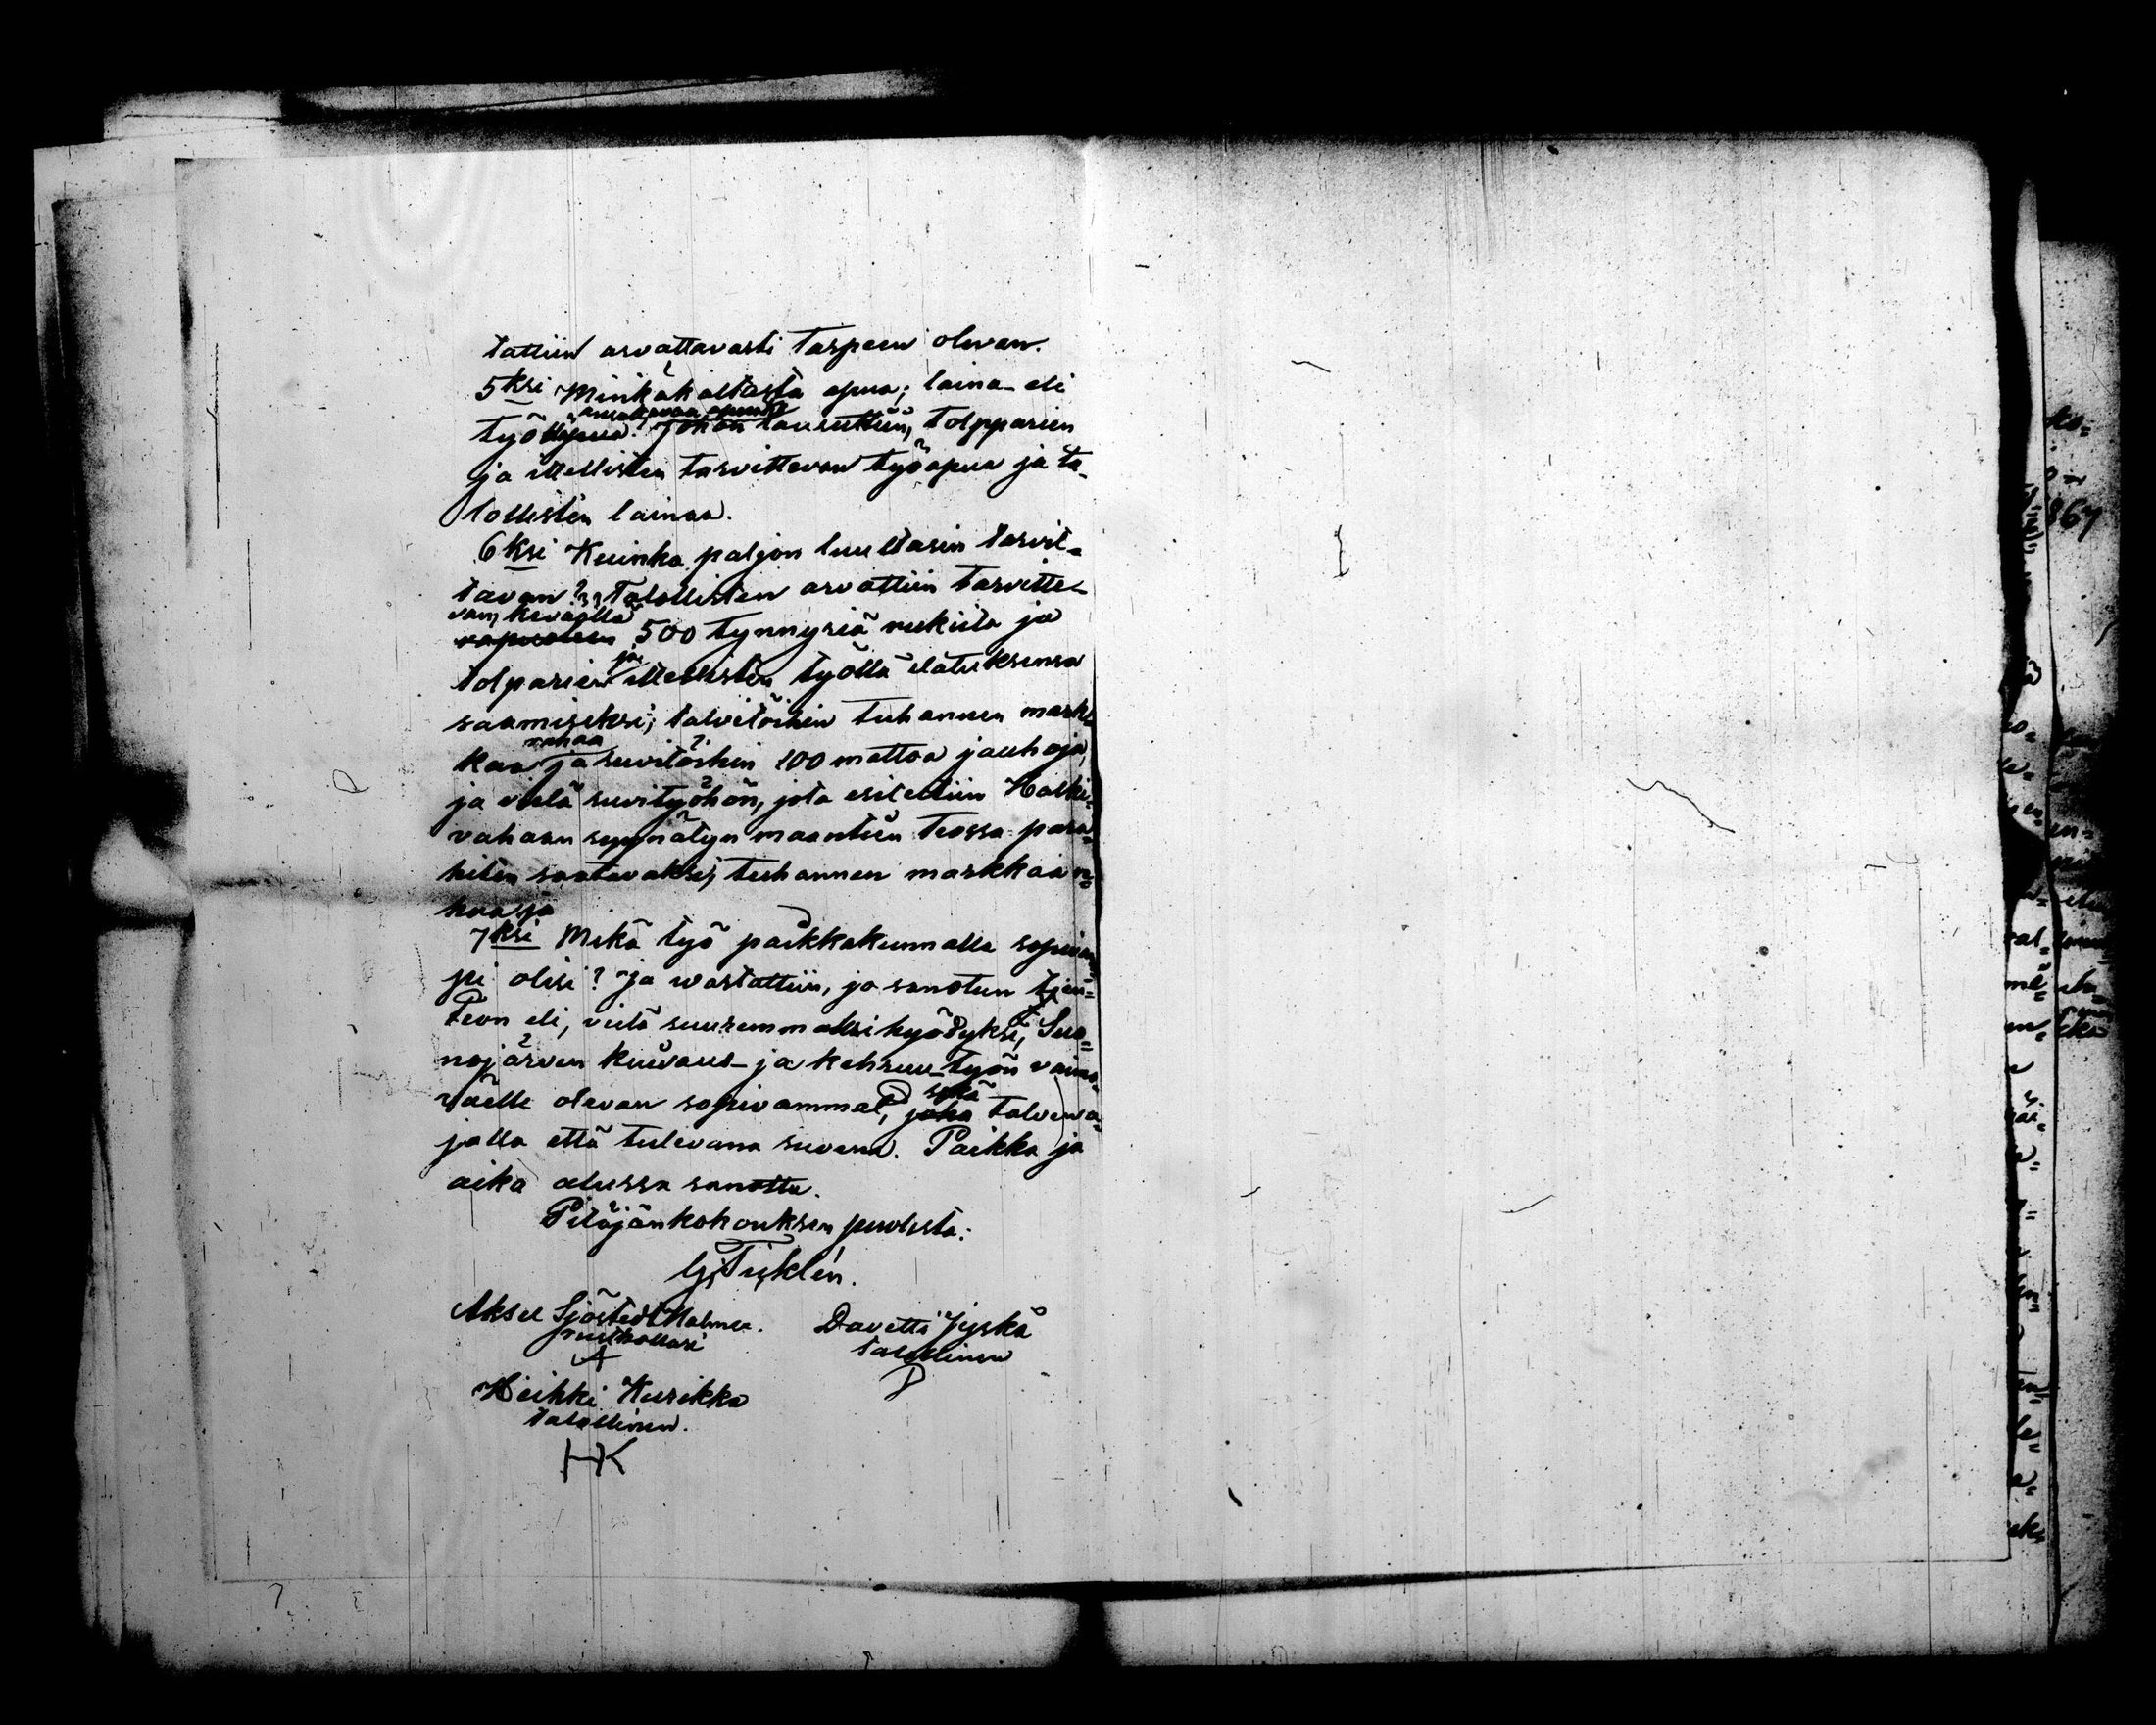 tattiin arvattavasti tarpeen olevan.
5ksi Minkäkaltasta apua; laina- eli
työapua? Johon lausuttiin, tolpparien
ja itsellisten tarvittevan työapua ja ta-
lollisten lainaa.
6ksi Kuinka paljon luultasiin tarvit=
tavan? Talollisten arvattiin tarvitte-
van, keväällä
500 tynnyriä rukiita ja
tolparien ja itsellisten työllä elatuksensa
saamiseksi; talvitöihin tuhannen mark=
kaa rahaa ja suvitöihin 100 mattoa jauhoja,
ja vielä suvityöhön, jota esitettiin Halki=
vahaan synnätyn maantien teossa para=
hiten saatavaksi, tuhannen markkaa ra=
haa ja
7ksi Mikä työ paikkakunnalla sopivam=
pi olisi? Ja wastattiin, jo sanotun tien=
teon eli, vielä suuremmaksi hyödyksi, Suo=
nojärven kuivaus- ja kehruu-työn vaimo-
väelle olevan sopivammat, sekä talven a=
jalla että tulevana suvena. Paikka ja
aika alussa sanottu.
Pitäjänkokouksen puolesta:
Gj Ticklén.
Aksel Sjöstedt Halmee. Davetti Jyskä
rusthollari talollinen
Heikki Kurikka
talollinen.
HK
ko=
867